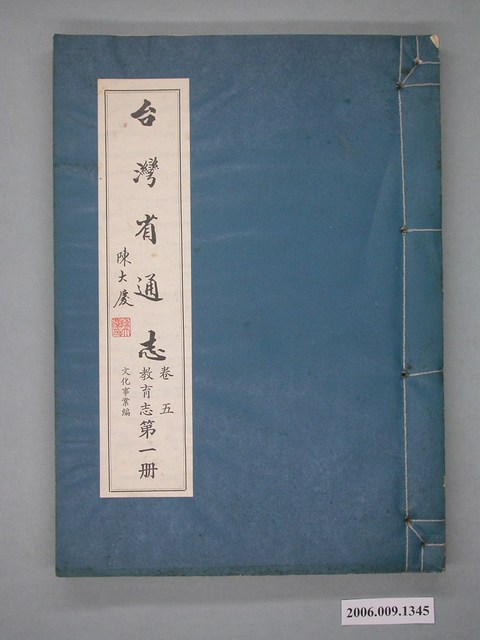 台灣省通志
卷五
教育志第一冊
文化事業編
陳大慶
2006.009.1345